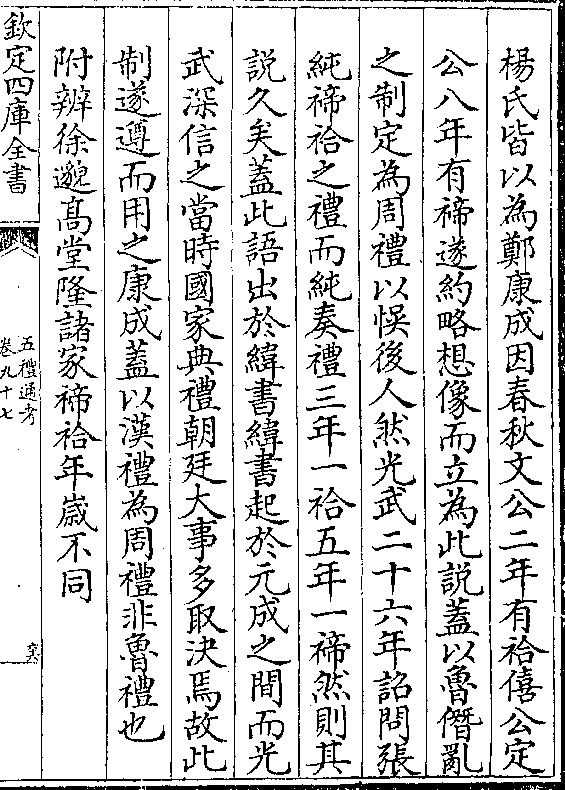 楊氏皆以為鄭康成因春秋文公二年有祫僖公定
公八年有禘遂約略想像而立為此説蓋以魯僭亂
之制定為周禮以悮後人然光武二十六年詔問張
純禘祫之禮而純奏禮三年一祫五年一禘然則其
説久矣蓋此語出於緯書緯書起於元成之間而光
武深信之當時國家典禮朝廷大事多取決焉故此
制遂遵而用之康成蓋以漢禮為周禮非魯禮也
附辨徐邈髙堂隆諸家禘祫年嵗不同
欽定四庫全書
五禮通考
卷九十七